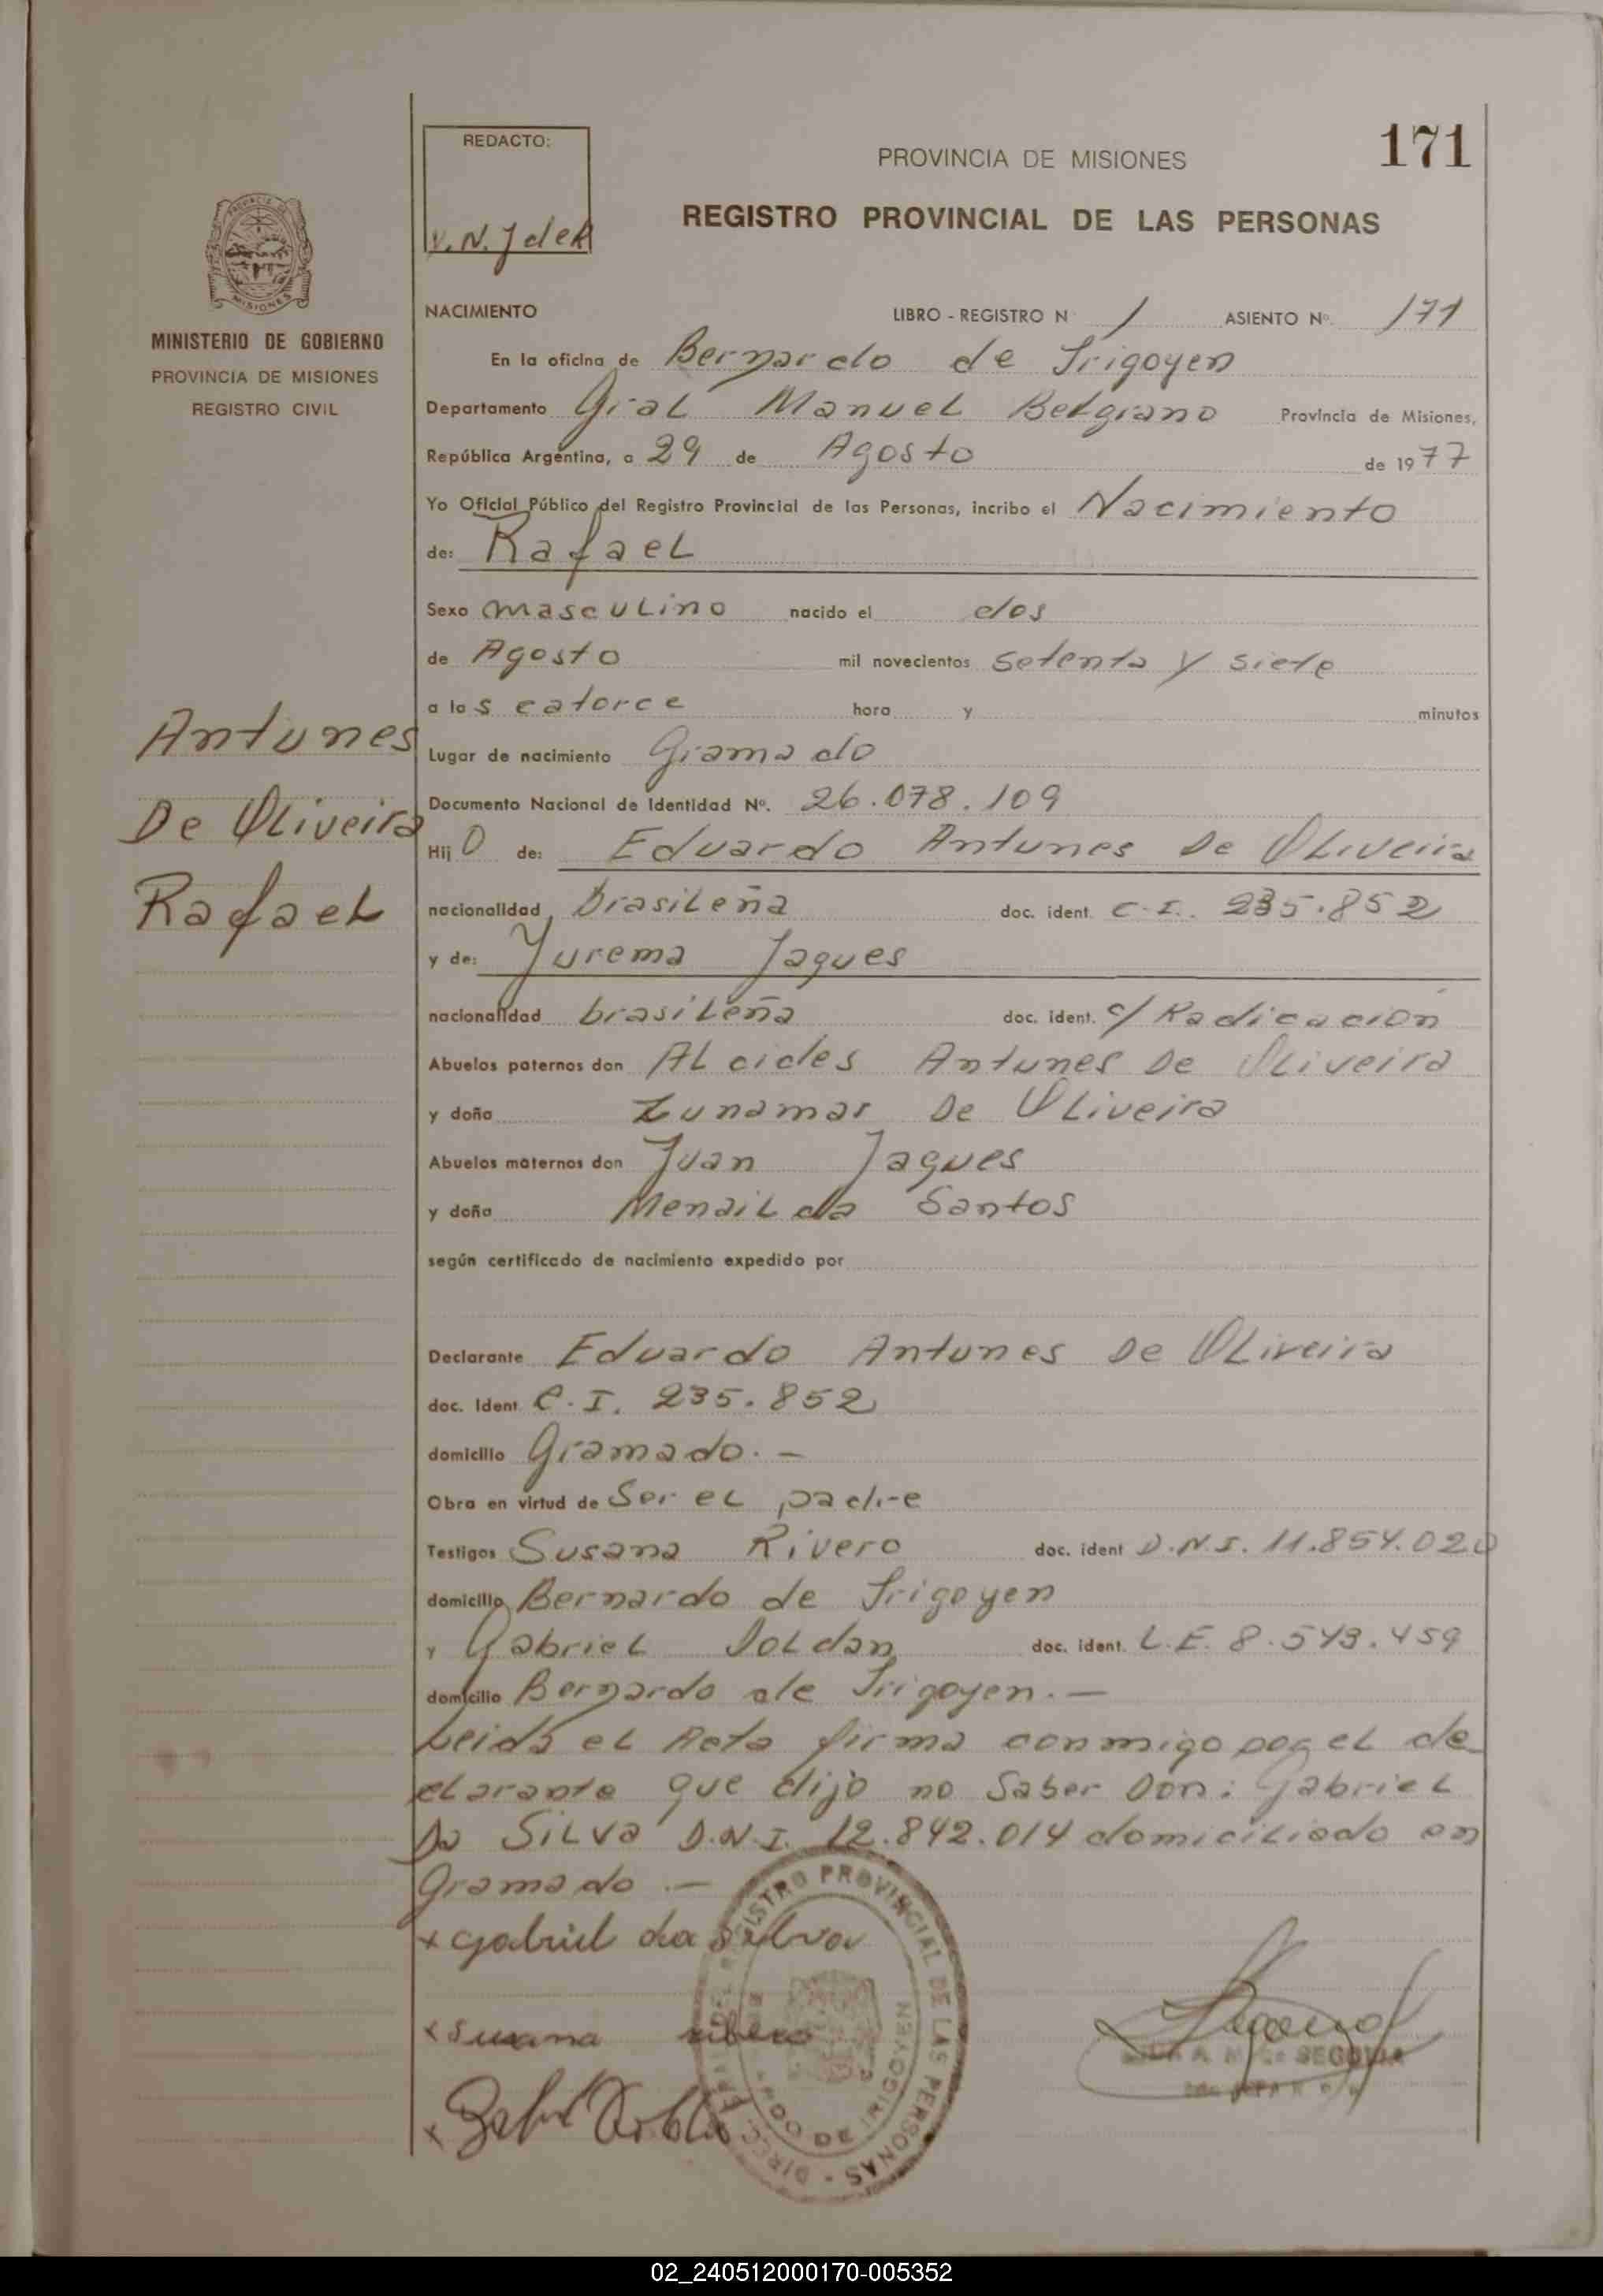 171
REDACTO:
V.N. J de R
PROVINCIA DE MISIONES
REGISTRO PROVINCIAL DE LAS PERSONAS
MINISTERIO DE GOBIERNO
PROVINCIA DE MISIONES
REGISTRO CIVIL
NACIMIENTO LIBRO - REGISTRO N 1 ASIENTO Nº. 171
En la oficina de Bernardo de Irigoyen
Departamento Gral Manuel Belgrano Provincia de Misiones,
República Argentina, a 29 de Agosto de 1977
Yo Oficial Público del Registro Provincial de las Personas, incribo el Nacimiento
de: Rafael
Sexo masculino nacido el dos
de Agosto mil novecientos setenta y siete
a las catorce hora y minutos
Antunes
De Oliveira
Rafael
Lugar de nacimiento Gramado
Documento Nacional de Identidad Nº. 26.078.109
Hijo de: Eduardo Antunes De Oliveira
nacionalidad brasileña doc. ident. C.I. 235.852
y de: Yurema Jaques
nacionalidad brasileña doc. ident. c/ Radicación
Abuelos paternos don Alcides Antunes De Oliveira
y doña Lunamar De Oliveira
Abuelos maternos don Juan Jaques
y doña Menailda Santos
según certificado de nacimiento expedido por
Declarante Eduardo Antunes De Oliveira
doc. ident. C.I. 235.852
domicilio Gramado.-
Obra en virtud de Ser el padre
Testigos Susana Rivero doc. ident D.N.I. 11.854.020
domicilio Bernardo de Irigoyen
y Gabriel Doldan doc. ident. L.E. 8.543.459
domicilio Bernardo de Irigoyen.-
Leida el Acta firma conmigo por el de
clarante que dijo no Saber Don: Gabriel
Da Silva D.N.I. 12.842.014 domiciliado en
Gramado.-
x gabriel da silva
x Susana ribero
SEGOVIA
DIRECC. GRAL. DEL REGISTRO PROVINCIAL DE LAS PERSONAS
BDO DE IRIGOYEN
02_240512000170-005352